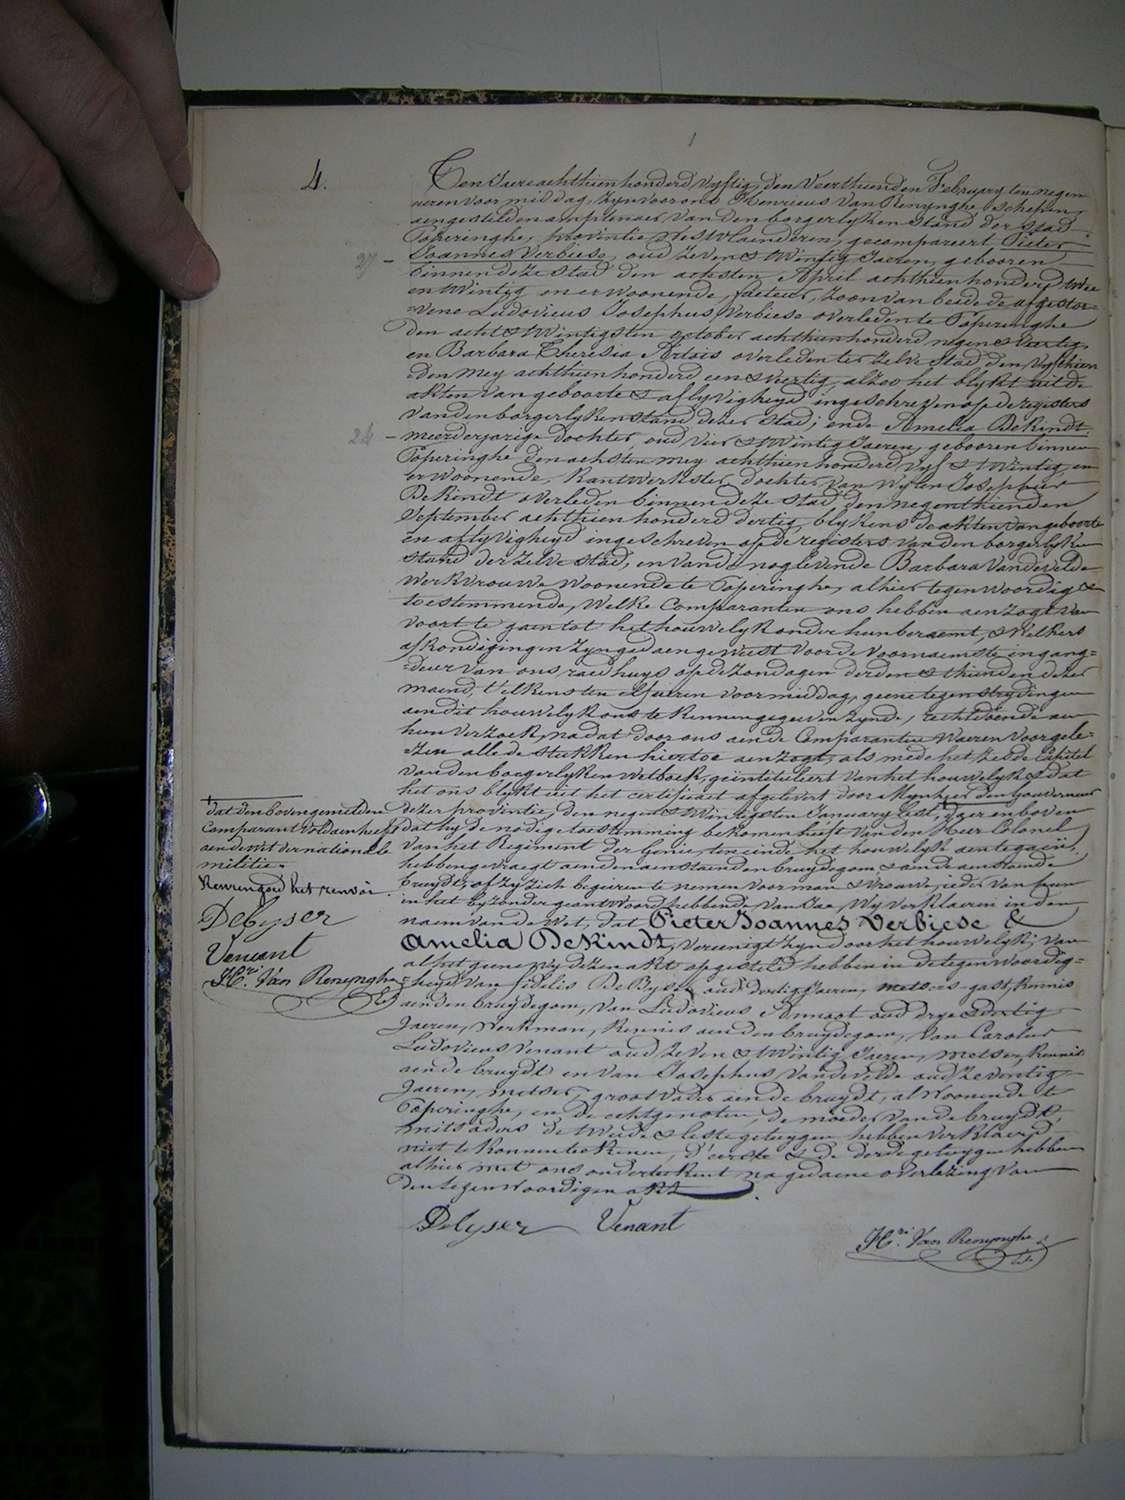 1
4.
Ten Jaere achthien honderd vyftig, den Veerthienden February ten negen
ueren voor middag, zyn voor ons Henricus Van Renynghe, schepen
aengestelden amptenaer van den borgerlyken stand der stad
Poperinghe, provintie Westvlaenderen, gecompareert Pieter
27 - Joannes Verbiese, oud zeven & twintig Jaeren, gebooren
binnen deze stad den achsten April achthien honderd twee
en twintig, en er woonende, facteur, zoon van beide de afgestor=
=vene Ludovicus Josephus Verbiese overleden te Poperinghe
den acht & twintigsten october achthien honderd negen & veertig,
en Barbara Theresia Artois overleden ter zelve stad den vyfthien
den mey achthien honderd een & veertig, alzoo het blykt uit de
akten van geboorte & aflyvigheyd ingeschreven op de registers
van den borgerlyken stand dezer stad; ende Amelia DeKindt,
24 - meerderjarige dochter oud vier & twintig Jaeren, gebooren binnen
Poperinghe den achsten mey achthien honderd vyf & twintig, en
er woonende, Kantwerkster, dochter van wylen Josephus
DeKindt overleden binnen deze stad den negenthienden
September achthien honderd dertig, blykens de akten van geboorte
en aflyvigheyd ingeschreven op de registers van den borgerlyken
stand der zelve stad, en van de nog levende Barbara Vandevelde
werkvrouwe woonende te Poperinghe, alhier tegenwoordig &
toestemmende, Welke Comparanten ons hebben aenzogt van
voort te gaen tot het houwelyk onder hun beraemt, & welkers
afkondigingen zyn gedaen geweest voor de voornaemste ingang=
=deur van ons raedhuys op de zondagen derden & thienden dezer
maend, telkens ten elf ueren voor middag, geene tegenstrydingen
aen dit houwelyk ons te kennen gegeven zynde, rechtdoende aen
hun verzoek, na dat door ons aen de Comparanten waeren voorgele=
=zen alle de stukken hiertoe aenzogt, als mede het zesde Capitel
van den borgerlyken wetboek, geïntituleert van het houwelyk & dat
het ons blykt uit het certificaet afgelevert door Mynheer den gouverneur
dezer provintie, den negen & twintigsten January lest, dger en boven
dat hy de nodige toestemming bekomen heeft van den Heer Colonel
van het Regiment der Genie, ten einde het houwelyk aen te gaen,
hebben gevraegt aen den aenstaenden bruydegom & aen de aenstaende
bruydt, of zy zich begeeren te nemen voor man & vrouwe, ieder van hun
in het byzonder geantwoord hebbende van Jae, Wy verklaeren in den
naem van de Wet, dat Pieter Joannes Verbiese &
Amelia DeKindt, vereenigt zyn door het houwelyk; van
al het geene wy dezen akt opgesteld hebben in de tegenwoordig=
=heyd van fidelis De Byser oud dertig Jaeren, metsers gast, Kennis
aen den bruydegom, van Ludovicus Annoot oud drye & dertig
Jaeren, werkman, Kennis aen den bruydegom, van Carolus
Ludovicus Venant oud zeven & twintig Jaeren, metser, Kennis
aen de bruydt en van Josephus Vandevelde oud zeventig
Jaeren, metser, grootvader aen de bruydt, al woonende te
Poperinghe, en de echtgenoten, de moeder van de bruydt,
mitsaders de tweede & leste getuygen hebben verklaerd
niet te konnen teekenen, d'eerste & de derde getuygen hebben
alhier met ons onderteekent na gedaene overlezing van
den tegenwoordigen akt.
Debyser Venant
Hri. Van Renynghe
dat den bovengemelden
Comparant voldaen heeft
aen de wet der nationale
militie.
Keuren goed het renvoi
Debyser
Venant
Hri. Van Renynghe